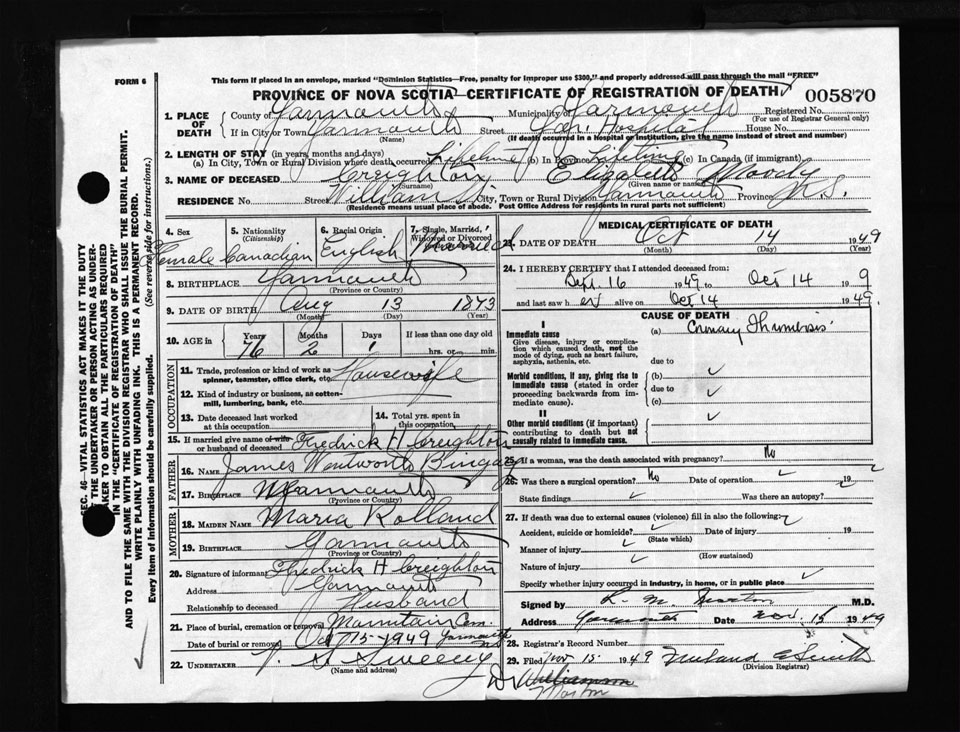 FORM 6
This form if placed in an envelope, marked "Dominion Statistics—Free, penalty for improper use $300," and properly addressed will pass through the mail "FREE"
PROVINCE OF NOVA SCOTIA—CERTIFICATE OF REGISTRATION OF DEATH
005870
1. PLACE OF DEATH
County of Yarmouth Municipality of Yarmouth Registered No.
(For use of Registrar General only)
If in City or Town Yarmouth Street Hospital House No.
(Name) (If death occurred in a Hospital or Institution, give the name instead of street and number)
2. LENGTH OF STAY (in years, months and days)
(a) In City, Town or Rural Division where death occurred Lifetime (b) In Province Lifetime (c) In Canada (if immigrant)
3. NAME OF DECEASED Creighton Elizabeth Moody
(Surname) (Given name or names)
RESIDENCE No. Street William St. City, Town or Rural Division Yarmouth Province N.S.
(Residence means usual place of abode. Post Office Address for residents in rural parts not sufficient)
4. Sex Female
5. Nationality (Citizenship) Canadian
6. Racial Origin English
7. Single, Married, Widowed or Divorced Married
8. BIRTHPLACE Yarmouth
(Province or Country)
9. DATE OF BIRTH Aug 13 1873
(Month) (Day) (Year)
10. AGE in Years Months Days If less than one day old
76 2 1 hrs. or min.
OCCUPATION
11. Trade, profession or kind of work as spinner, teamster, office clerk, etc. Housewife
12. Kind of industry or business, as cotton-mill, lumbering, bank, etc.
13. Date deceased last worked at this occupation
14. Total yrs. spent in this occupation
15. If married give name of wife or husband of deceased Fredrick H Creighton
FATHER
16. NAME James Wentworth Bingay
17. BIRTHPLACE Yarmouth
(Province or Country)
MOTHER
18. MAIDEN NAME Maria Rolland
19. BIRTHPLACE Yarmouth
(Province or Country)
20. Signature of informant Fredrick H Creighton
Address Yarmouth
Relationship to deceased Husband
21. Place of burial, cremation or removal Mountain Cem.
Date of burial or removal Oct 15-1949 Yarmouth NS
22. UNDERTAKER Sweeny
(Name and address)
MEDICAL CERTIFICATE OF DEATH
23. DATE OF DEATH Oct 14 1949
(Month) (Day) (Year)
24. I HEREBY CERTIFY that I attended deceased from:
Sept. 16 1949 to Oct 14 9
and last saw her alive on Oct 14 1949.
CAUSE OF DEATH
I
Immediate cause
Give disease, injury or complication which caused death, not the mode of dying, such as heart failure, asphyxia, asthenia, etc.
(a) Coronary Thrombosis
due to
Morbid conditions, if any, giving rise to immediate cause (stated in order proceeding backwards from immediate cause).
(b)
due to
(c)
II
Other morbid conditions (if important) contributing to death but not causally related to immediate cause.
25. If a woman, was the death associated with pregnancy? No
26. Was there a surgical operation? No Date of operation 19
State findings Was there an autopsy?
27. If death was due to external causes (violence) fill in also the following:
Accident, suicide or homicide? Date of injury 19
(State which)
Manner of injury
(How sustained)
Nature of injury
Specify whether injury occurred in industry, in home, or in public place
Signed by L. M. Morton M.D.
Address Yarmouth Date Nov. 15 1949
28. Registrar's Record Number
29. Filed Nov 15 1949 Smith
(Division Registrar)
Dr Williamson
Morton
SEC. 46—VITAL STATISTICS ACT MAKES IT THE DUTY
OF THE UNDERTAKER OR PERSON ACTING AS UNDERTAKER TO OBTAIN ALL THE PARTICULARS REQUIRED
IN THE "CERTIFICATE OF REGISTRATION OF DEATH"
AND TO FILE THE SAME WITH THE DIVISION REGISTRAR WHO SHALL ISSUE THE BURIAL PERMIT.
WRITE PLAINLY WITH UNFADING INK. THIS IS A PERMANENT RECORD.
Every item of information should be carefully supplied. (See reverse side for instructions.)